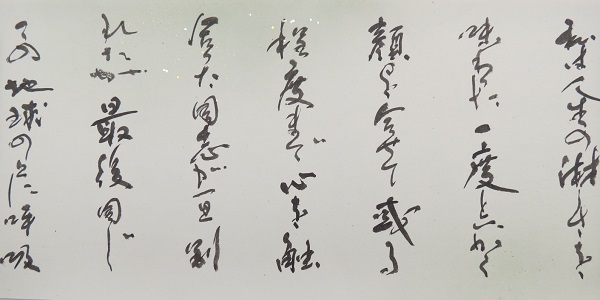 私は人生の淋しさを
味わった一度とにかく
顔を合せて或る
程度まで心を触
合った同志が一旦別
れたが最後同じ
この地球の上に呼吸